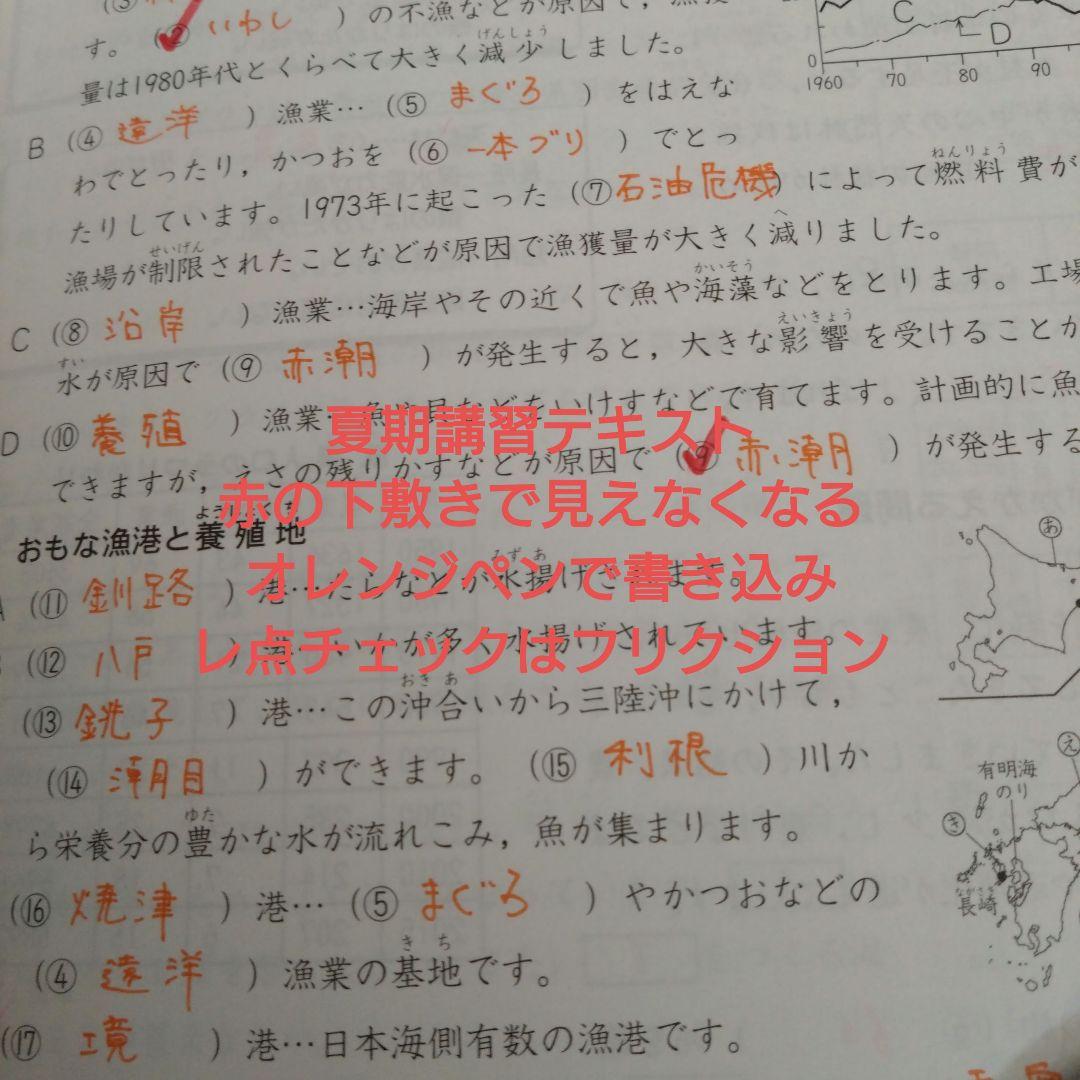 ② いわし ）の不漁などが原因で，漁獲
す。
げんしょう
量は1980年代とくらべて大きく減少しました。
B （④ 遠洋 ）漁業…（⑤ まぐろ ）をはえな
わでとったり，かつおを（⑥ 一本づり ）でとっ
たりしています。1973年に起こった（⑦石油危機）によって燃料費が
ねんりょう
せいげん
漁場が制限されたことなどが原因で漁獲量が大きく減りました。
へ
かいそう
C （⑧ 沿岸 ）漁業…海岸やその近くで魚や海藻などをとります。工場
すい
えいきょう
水が原因で（⑨ 赤潮 ）が発生すると，大きな影響を受けることが
D （⑩ 養殖 ）漁業…魚や貝などをいけすなどで育てます。計画的に魚
できますが，えさの残りかすなどが原因で（⑨ 赤潮 ）が発生する
ようしょくち
おもな漁港と養殖地
みずあ
（⑪ 釧路 ）港…たらなどが水揚げされます。
（⑫ 八戸 ）港…いかが多く水揚げされています。
おきあ
（⑬ 銚子 ）港…この沖合いから三陸沖にかけて，
（⑭ 潮目 ）ができます。（⑮ 利根 ）川か
ゆた
ら栄養分の豊かな水が流れこみ，魚が集まります。
（⑯ 焼津 ）港…（⑤ まぐろ ）やかつおなどの
きち
（④ 遠洋 ）漁業の基地です。
（⑰ 境 ）港…日本海側有数の漁港です。
C
D
0
1960 70 80 90
あ
え
有明海
のり
き
ながさき
長崎
夏期講習テキスト
赤の下敷きで見えなくなる
オレンジペンで書き込み
レ点チェックはフリクション